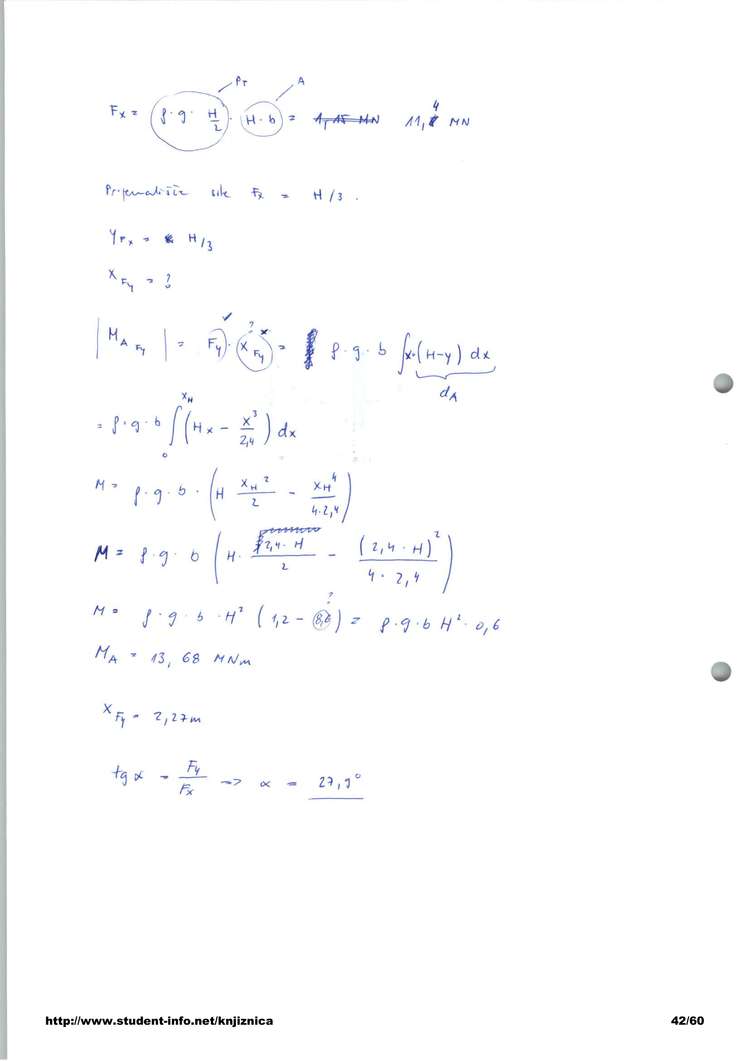 PT A
Fx = ρ·g· H/2 · H·b = 1,15 MN 11,4 MN
Prijemališče sile Fx = H/3.
yFx = H/3
xFy = ?
|MA Fy| = Fy · xFy = ρ·g·b ∫x·(H-y) dx
dA
= ρ·g·b ∫₀^xH (Hx - x³/2,4) dx
M = ρ·g·b·(H xH²/2 - xH⁴/4·2,4)
M = ρ·g·b (H· 2,4·H/2 - (2,4·H)²/4·2,4)
?
M = ρ·g·b·H² (1,2 - 0,6) = ρ·g·b H²·0,6
MA = 13,68 MNm
xFy = 2,27m
tg α = Fy/Fx -> α = 27,9°
http://www.student-info.net/knjiznica 42/60